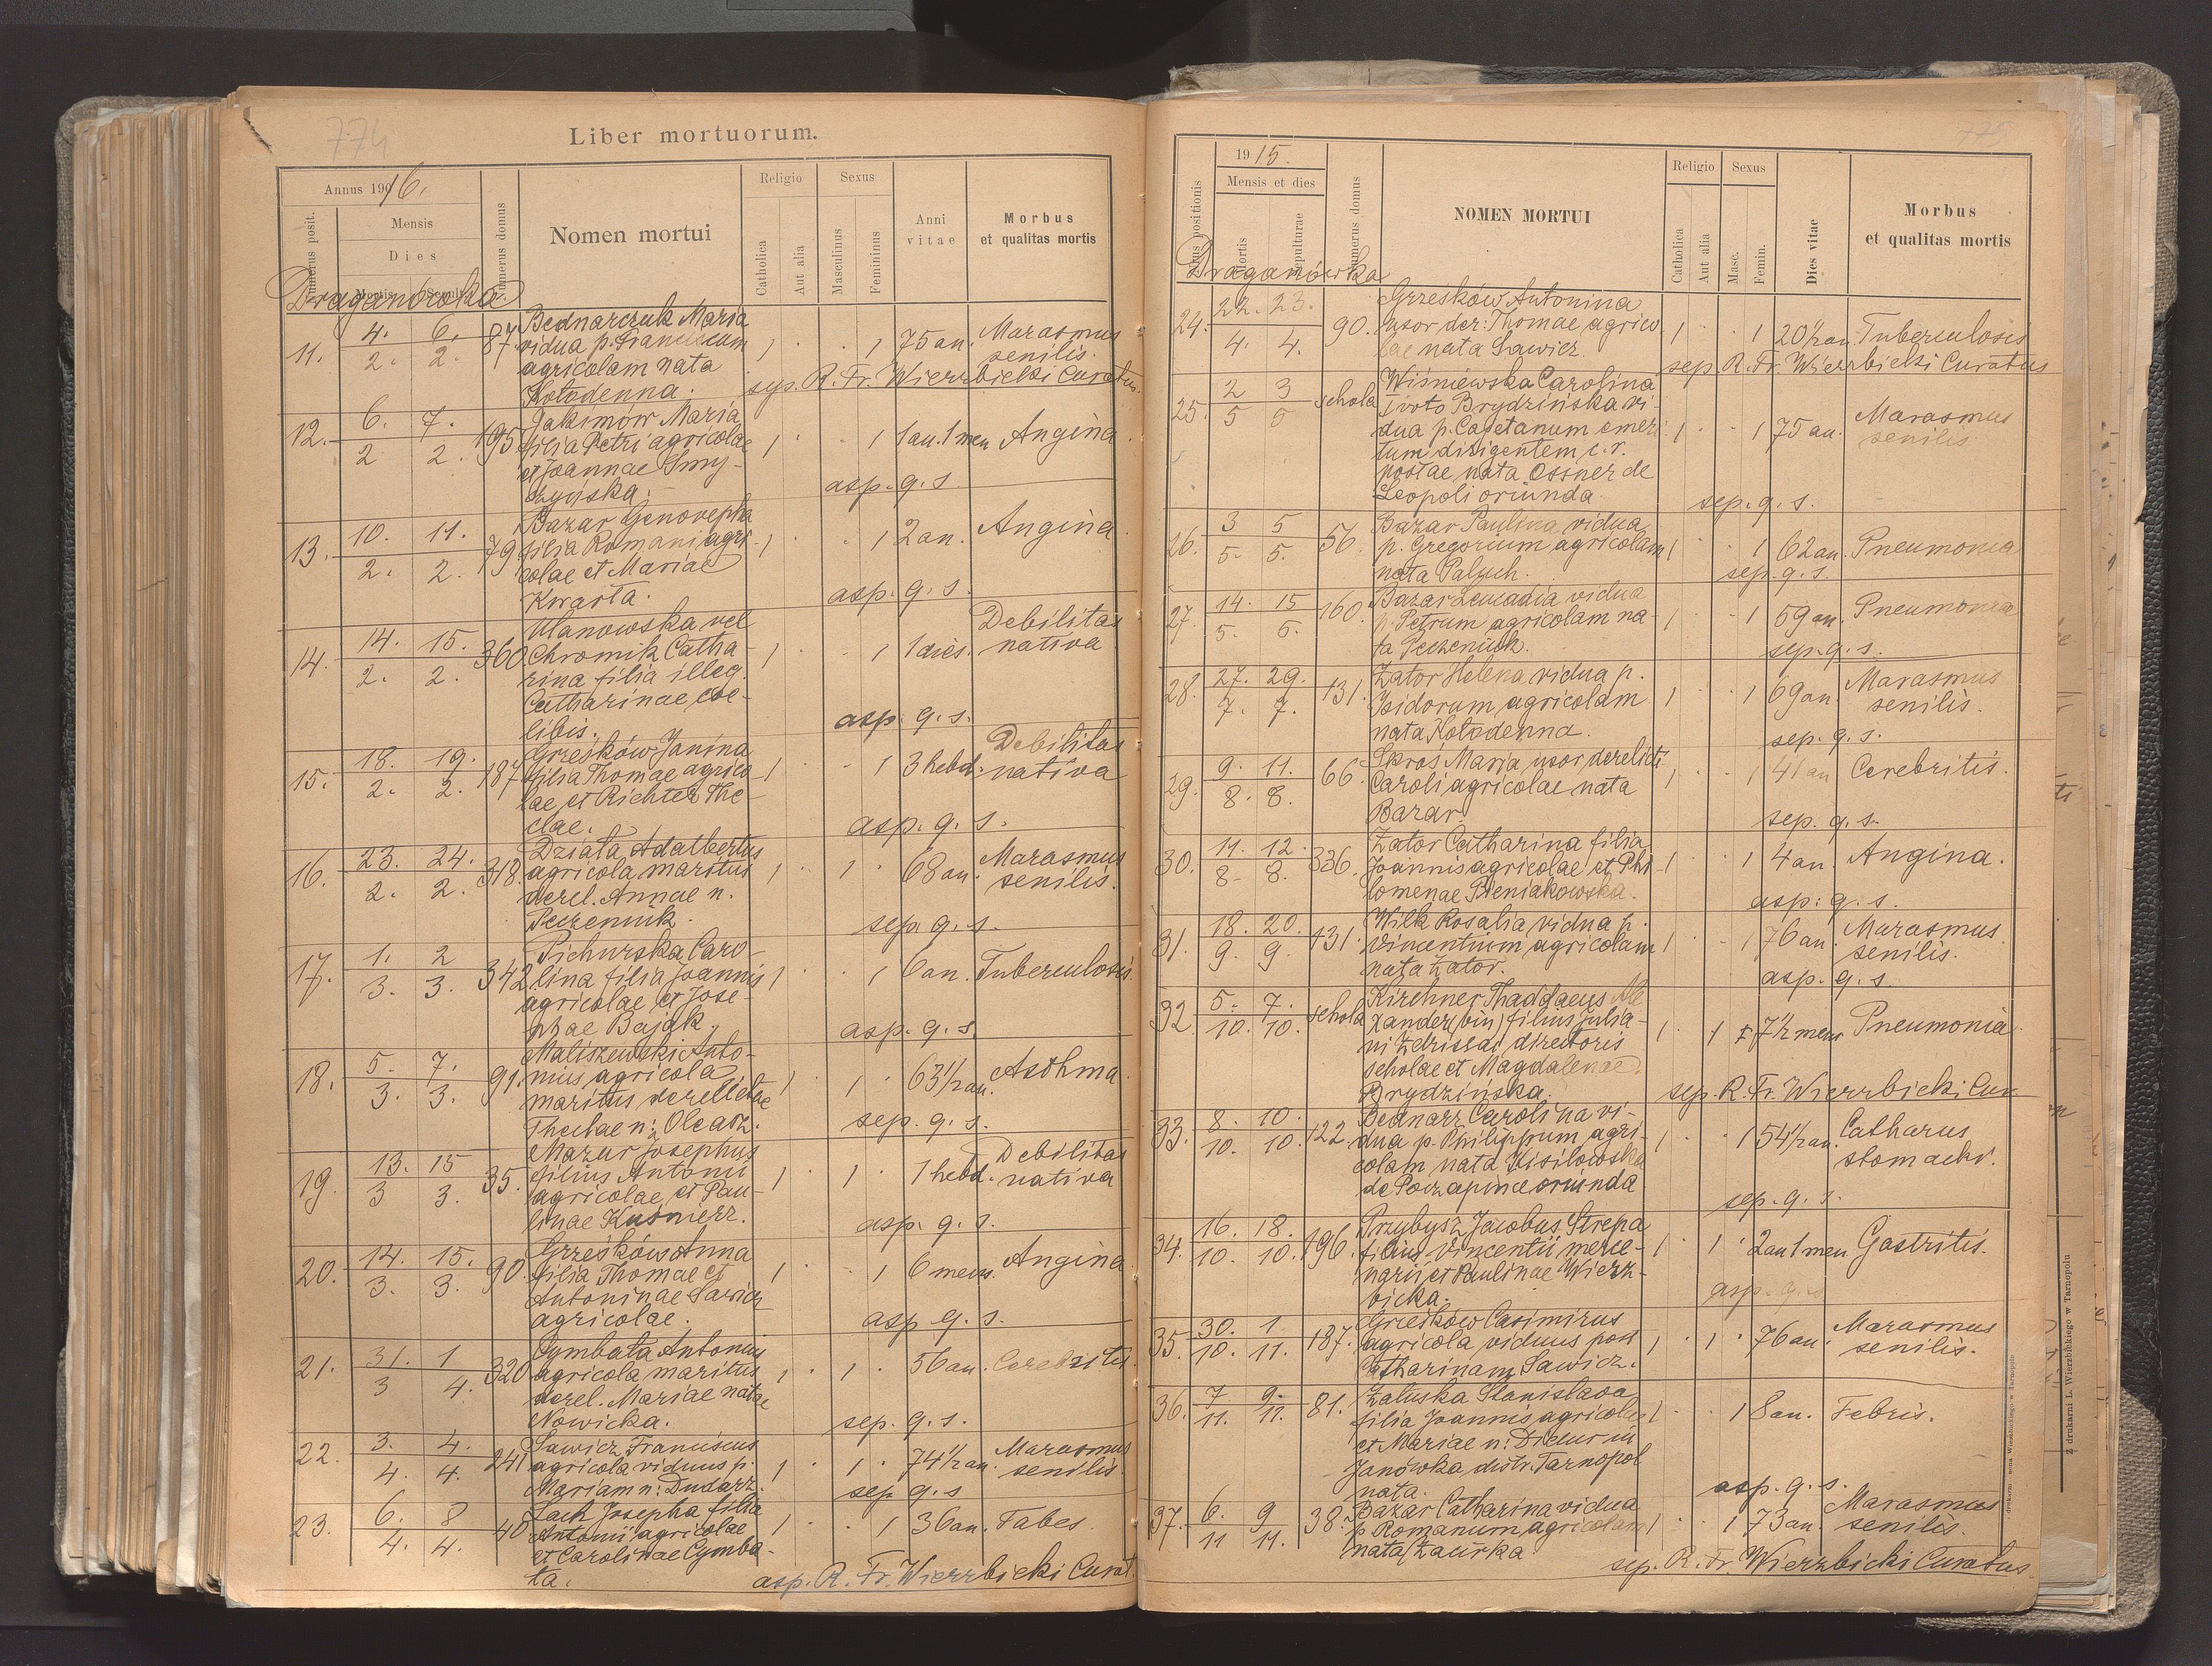 774
Liber mortuorum.
Annus 1916.
Numerus posit.
Mensis
Dies
Mortis
Sepult.
Numerus domus
Nomen mortui
Religio
Catholica
Aut alia
Sexus
Masculinus
Femininus
Anni vitae
Morbus et qualitas mortis
Draganówka
11. 4. 6. 87 Bednarczuk Maria
2. 2. vidua p. Franciscum 1 1 75 an. Marasmus
agricolam nata senilis.
Kołodenna. sep. R. Fr. Wierzbicki Curatus.
12. 6. 7. 195 Jakimów Maria
2 2. filia Petri agricolae 1 1 1 an. 1 men Angina
et Joannae Smy-
czyńska. asp. q. s.
13. 10. 11. 79 Bazar Genovepha
2. 2. filia Romani agri- 1 1 2 an. Angina
colae et Mariae
Kwarta. asp. q. s.
14. 14. 15. 360 Ulanowska vel
2. 2. Chromik Catha- 1 1 1 dies. Debilitas
rina filia illeg. nativa
Catharinae coe-
libis. asp. q. s.
15. 18. 19. 187 Grześków Janina
2. 2. filia Thomae agrico- 1 1 3 hebd. Debilitas
lae et Richter The- nativa
clae. asp. q. s.
16. 23. 24. 318. Działa Adalbertus
2. 2. agricola maritus 1 1 68 an. Marasmus
derel. Annae n. senilis.
Peczeniuk. sep. q. s.
17. 1. 2 342 Pichurska Caro-
3. 3. lina filia Joannis 1 1 6 an. Tuberculosis
agricolae et Jose-
phae Bajak. asp. q. s
18. 5. 7. 91. Maliszewski Anto-
3. 3. nius agricola 1 1 63 1/2 an. Asthma
maritus derelictae
Theclae n: Olearz. sep. q. s.
19. 13. 15 35. Mazur Josephus
3 3. filius Antonii 1 1 1 hebd. Debilitas
agricolae et Pau- nativa
linae Kuśnierz. asp. q. s.
20. 14. 15. 90. Grześków Anna
3. 3. filia Thomae et 1 1 6 mens. Angina
Antoninae Sawicz
agricolae. asp q. s.
21. 31. 1 320 Cymbała Antonius
3 4. agricola maritus 1 1 56 an. Cerebritis.
derel. Mariae natae
Nowicka. sep. q. s.
22. 3. 4. 241 Sawicz Franciscus
4. 4. agricola viduus p. 1 1 74 1/2 an. Marasmus
Mariam n: Dudarz. senilis
sep q. s
23. 6. 8 40 Łach Josepha filia
4. 4. Antonii agricolae 1 1 36 an. Tabes
et Carolinae Cymba-
ła. asp. R. Fr. Wierzbicki Curat.
775
1915.
Numerus positionis
Mensis et dies
mortis
sepulturae
Numerus domus
NOMEN MORTUI
Religio
Catholica
Aut alia
Sexus
Masc.
Femin.
Dies vitae
Morbus et qualitas mortis
Draganówka
24. 22. 23. 90. Grzesków Antonina
4. 4. uxor der: Thomae agrico 1 1 20 1/2 an. Tuberculosis
lae nata Sawicz. sep R. Fr. Wierzbicki Curatus
25. 2 3 schola Wiśniewska Carolina
5 5 1 voto Brydzińska vi-
dua p. Cajetanum emeri 1 1 75 an. Marasmus
tum dirigentem c. r. senilis
postae nata Ossner de
Leopoli oriunda. sep. q. s.
26. 3 5 56. Bazar Paulina vidua
5. 5. p. Gregorium agricolam 1 1 62 an. Pneumonia
nata Paluch. sep. q. s.
27. 14. 15 160. Bazar Leucadia vidua
5. 5. p. Petrum agricolam na- 1 1 59 an. Pneumonia
ta Peczeniuk. sep. q. s.
28. 27. 29. 131. Zator Helena vidua p.
7. 7. Isidorum agricolam 1 1 69 an. Marasmus
nata Kołodenna. senilis.
sep. q. s.
29. 9. 11. 66. Skroś Maria uxor derelicti
8. 8. Caroli agricolae nata 1 1 41 an Cerebritis.
Bazar. sep. q. s.
30. 11. 12 336. Zator Catharina filia
8. 8. Joannis agricolae et Phi- 1 1 4 an. Angina.
lomenae Pieniakowska. asp: q. s.
31. 18. 20. 131. Wilk Rosalia vidua p.
9. 9. Vincentium agricolam 1 1 76 an. Marasmus.
nata Zator. senilis.
asp. q. s.
32. 5. 7. schola Kirchner Thaddaeus Ale
10. 10. xander (bin) filius Julia- 1 1 7 1/2 mens Pneumonia
directoris
scholae et Magdalenae
Brydzińska. sep. R. Fr. Wierzbicki Cur
33. 8. 10. 122. Bednarz Carolina vi-
10. 10. dua p. Philippum agri- 1 1 54 1/2 an. Catharus
colam nata Kisilowska stomachi.
de Poczapince oriunda sep. q. s.
34. 16. 18. 196. Przybysz Jacobus Strepa
10. 10. filius Vincentii merce- 1 1 2 an 1 men Gastritis.
narii et Paulinae Wierz-
bicka. asp. q. s
35. 30. 1. 187. Grześków Casimirus
10. 11. agricola viduus post 1 1 76 an. Marasmus
Catharinam Sawicz. senilis.
36. 7 9. 81. Załuska Stanislava
11. 11. filia Joannis agricolae 1 1 8 an. Febris.
et Mariae n: Didur in
Janówka distr. Tarnopol
nata. asp. q. s.
37. 6. 9 38. Bazar Catharina vidua
11 11. p. Romanum agricolam 1 1 73 an. Marasmus
nata Zaurka senilis.
sep. R. Fr. Wierzbicki Curatus.
Z drukarni L. Wierzbickiego w Tarnopolu